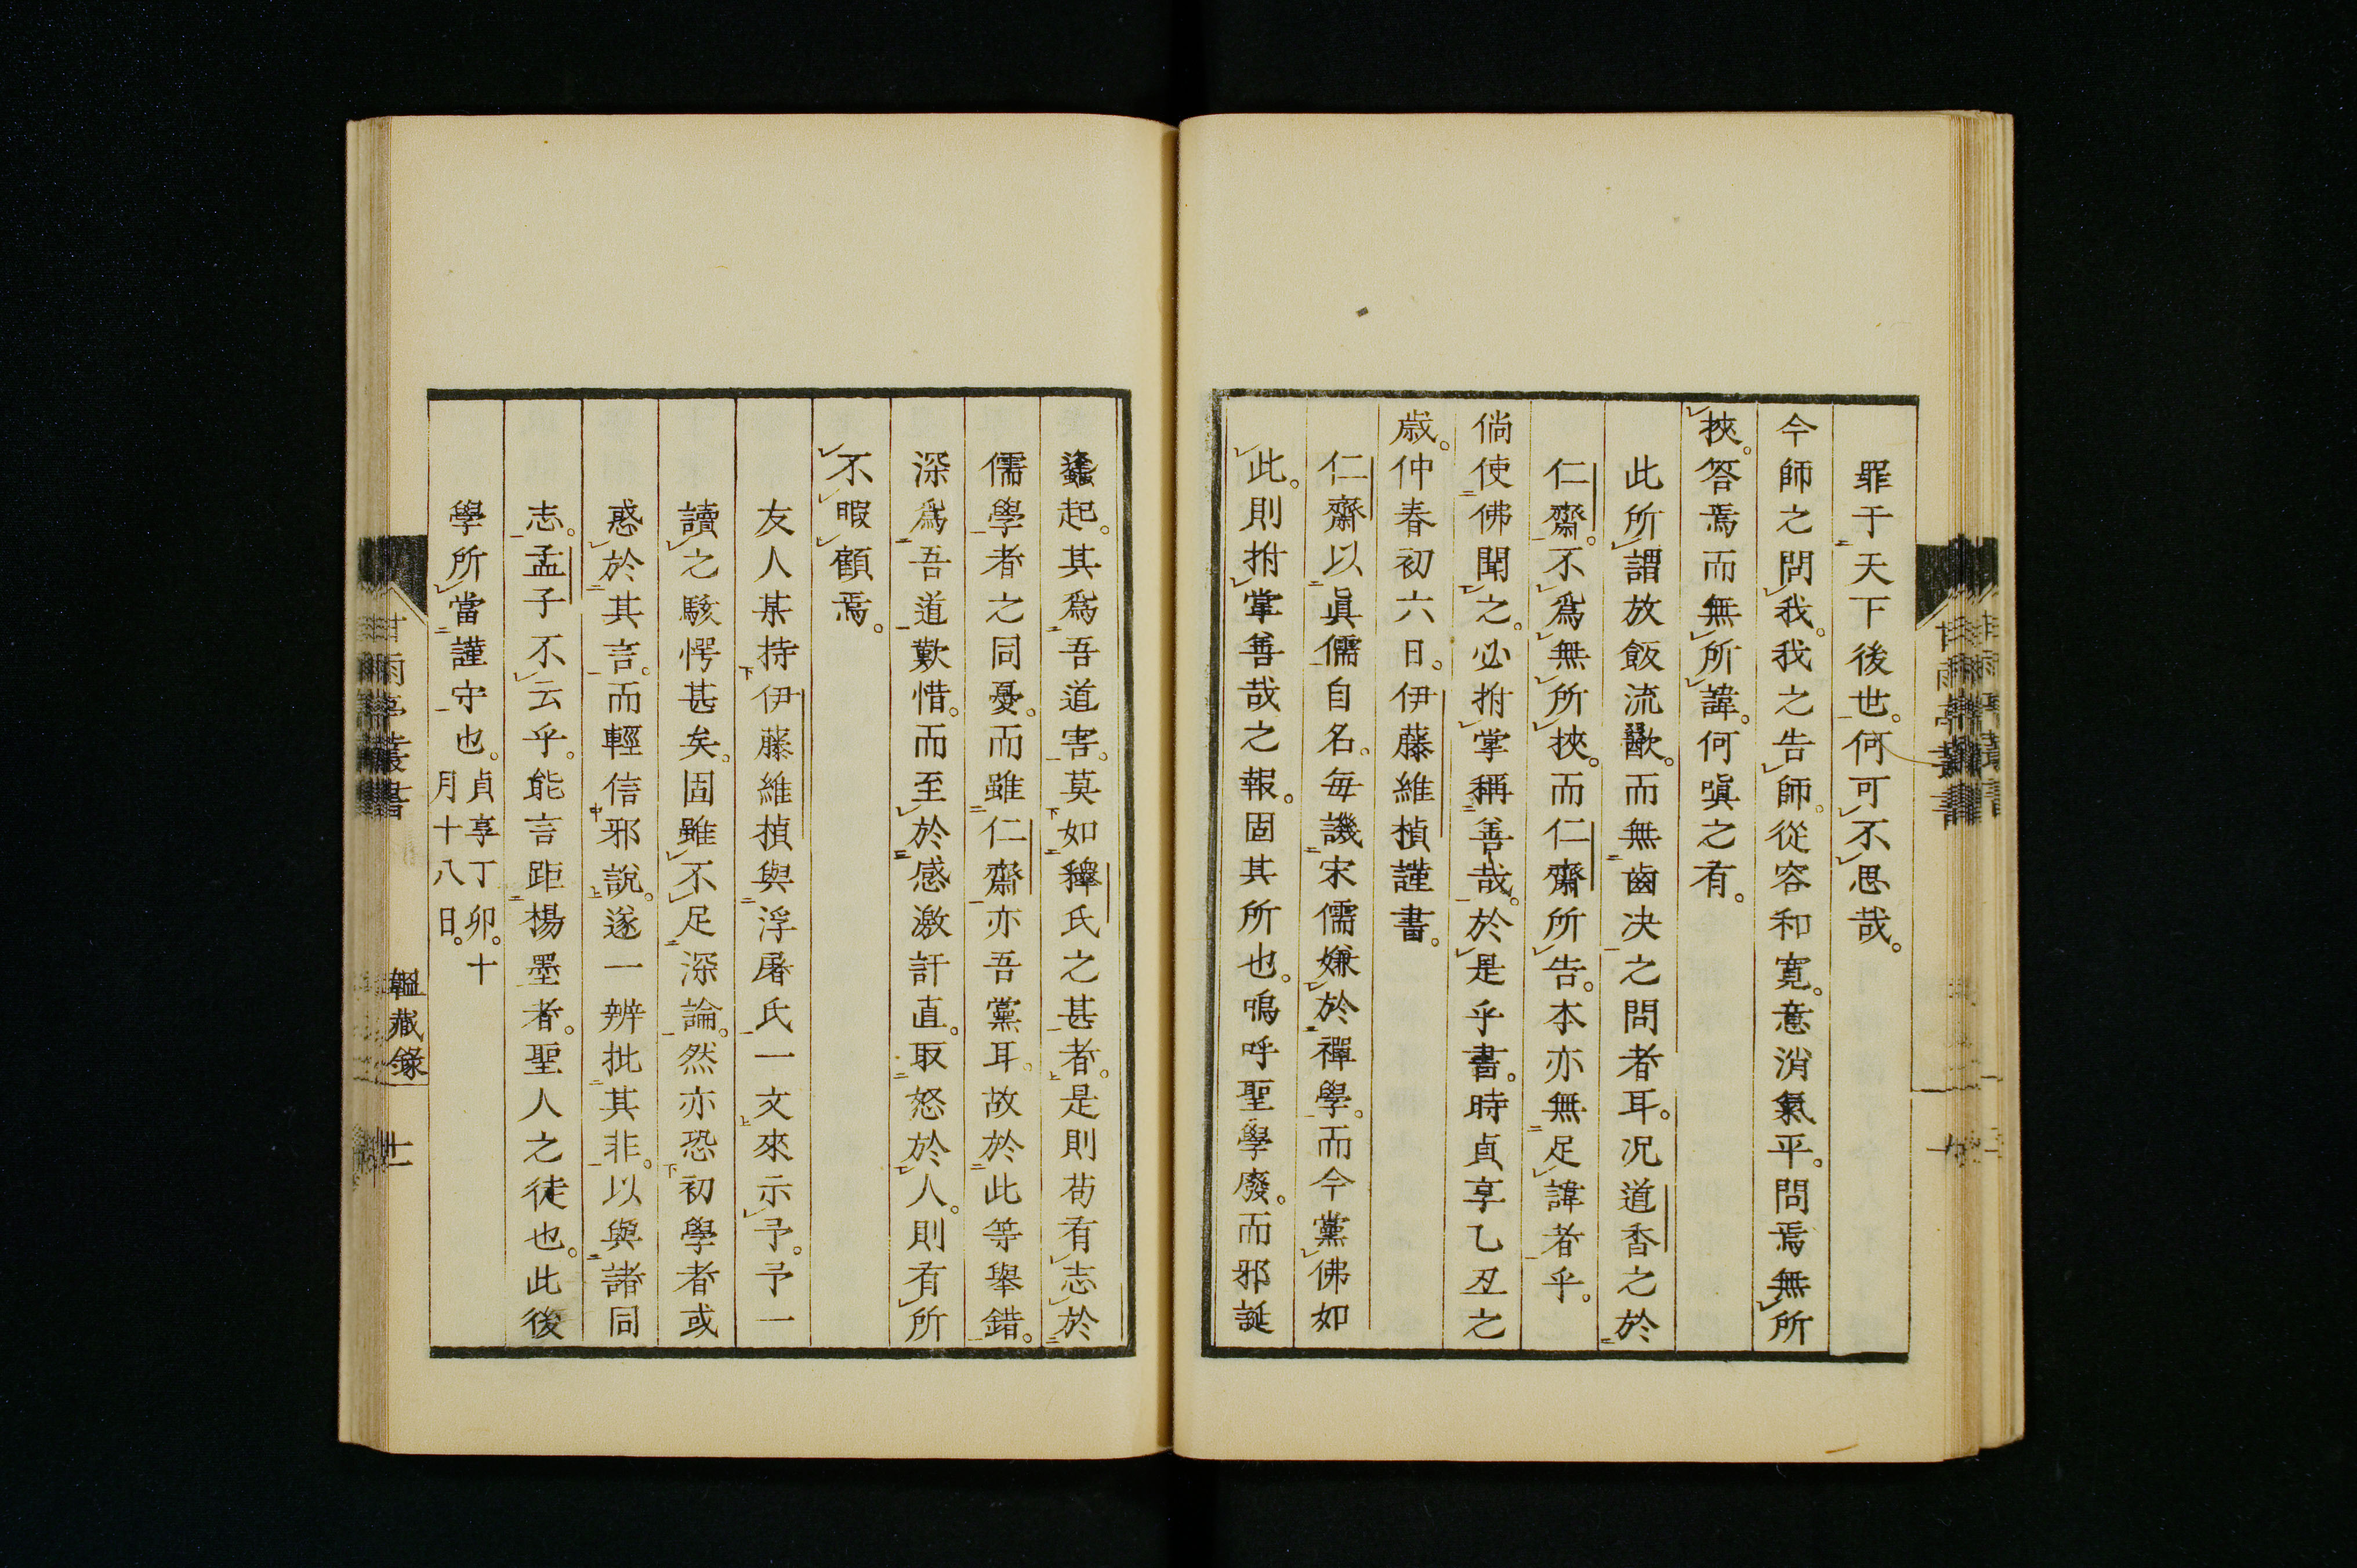 罪于天下後世。何可不思哉。
今師之問我。我之告師。從容和寬。意消氣平。問焉無所
挾。答焉而無所諱。何嗔之有。
此所謂放飯流歠。而無齒决之問者耳。况道香之於
仁齋。不爲無所挾。而仁齋所告。本亦無足諱者乎。
倘使佛聞之。必拊掌稱善哉。於是乎書。時貞享乙丑之
歳。仲春初六日。伊藤維楨謹書。
仁齋以眞儒自名。毎譏宋儒嫌於禪學。而今黨佛如
此。則拊掌善哉之報。固其所也。嗚呼聖學廢。而邪誕
蠭起。其爲吾道害。莫如釋氏之甚者。是則苟有志於
儒學者之同憂。而雖仁齋亦吾黨耳。故於此等擧錯。
深爲吾道歎惜。而至於感激訐直。取怒於人。則有所
不暇顧焉。
友人某持伊藤維楨與浮屠氏一文來示予。予一
讀之駭愕甚矣。固雖不足深論。然亦恐初學者或
惑於其言。而輕信邪說。遂一辨批其非。以與諸同
志。孟子不云乎。能言距楊墨者。聖人之徒也。此後
學所當謹守也。貞享丁卯。十
月十八日。
甘雨亭叢書
韞藏錄
十